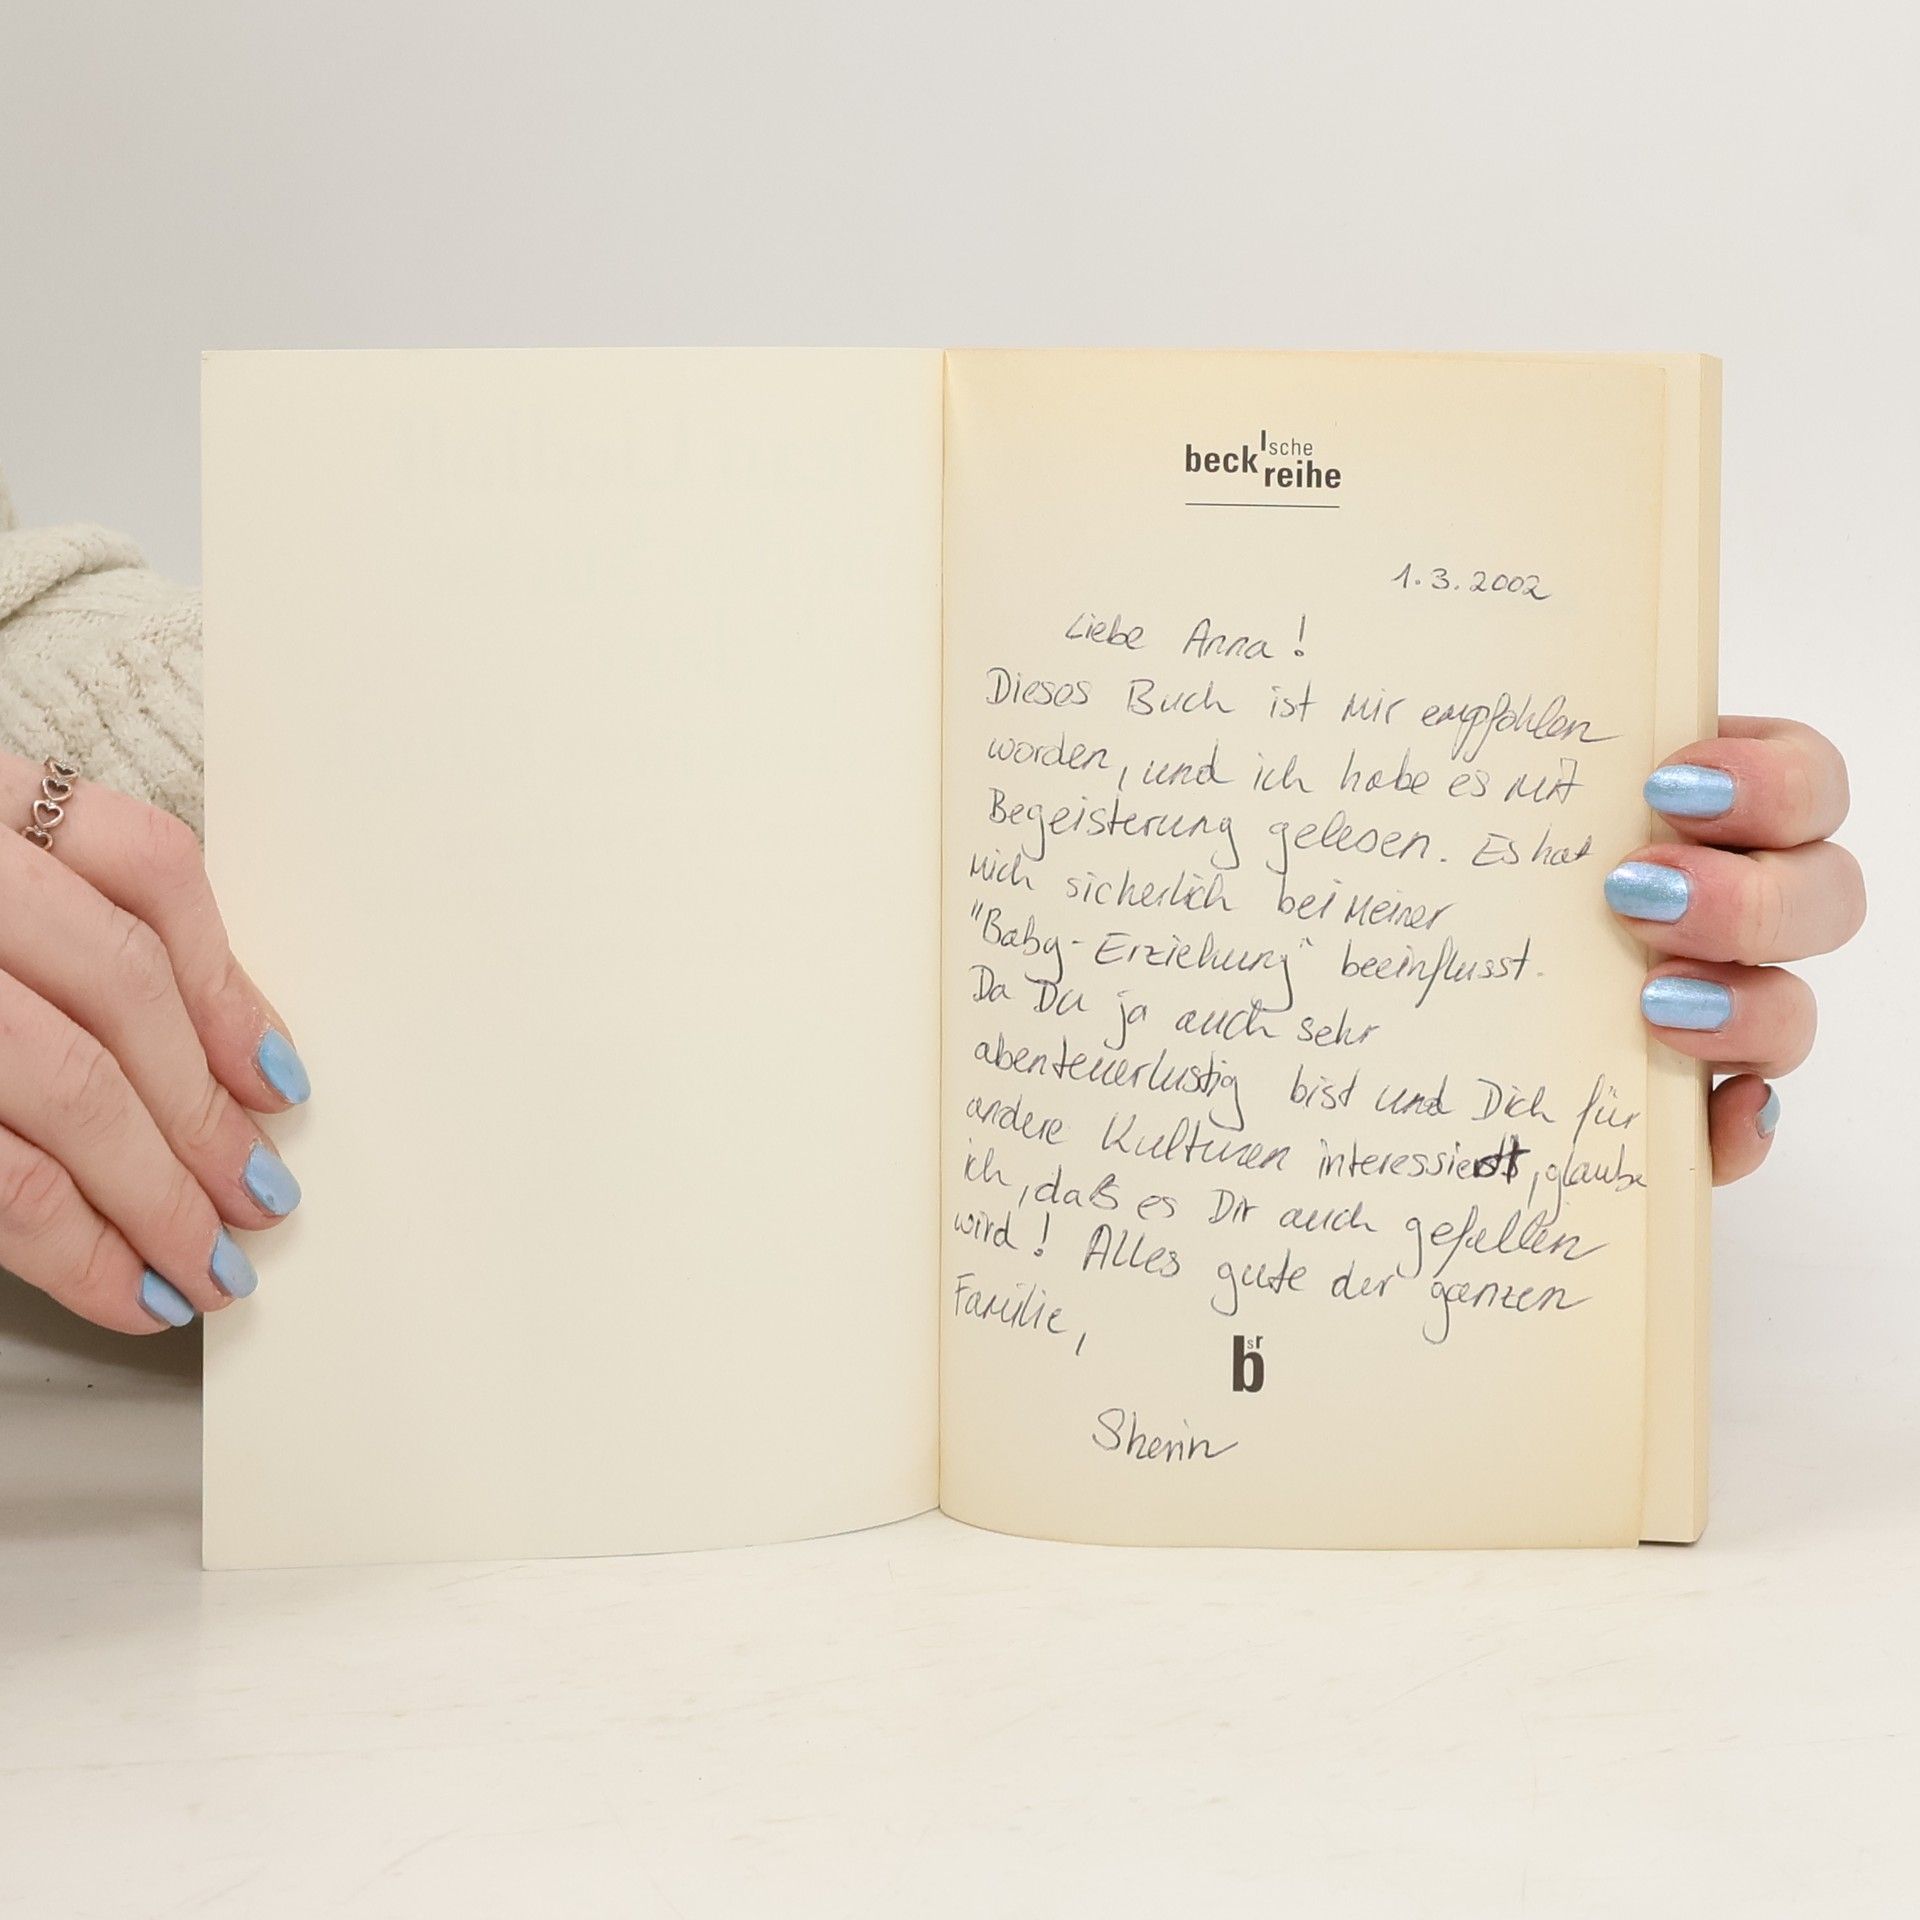 beck'sche
reihe
1.3.2002
Liebe Anna!
Dieses Buch ist mir empfohlen
worden, und ich habe es mit
Begeisterung gelesen. Es hat
mich sicherlich bei meiner
"Baby-Erziehung" beeinflusst.
Da Du ja auch sehr
abenteuerlustig bist und Dich für
andere Kulturen interessierst, glaube
ich, daß es Dir auch gefallen
wird! Alles gute der ganzen
Familie,
bsr
Sherin